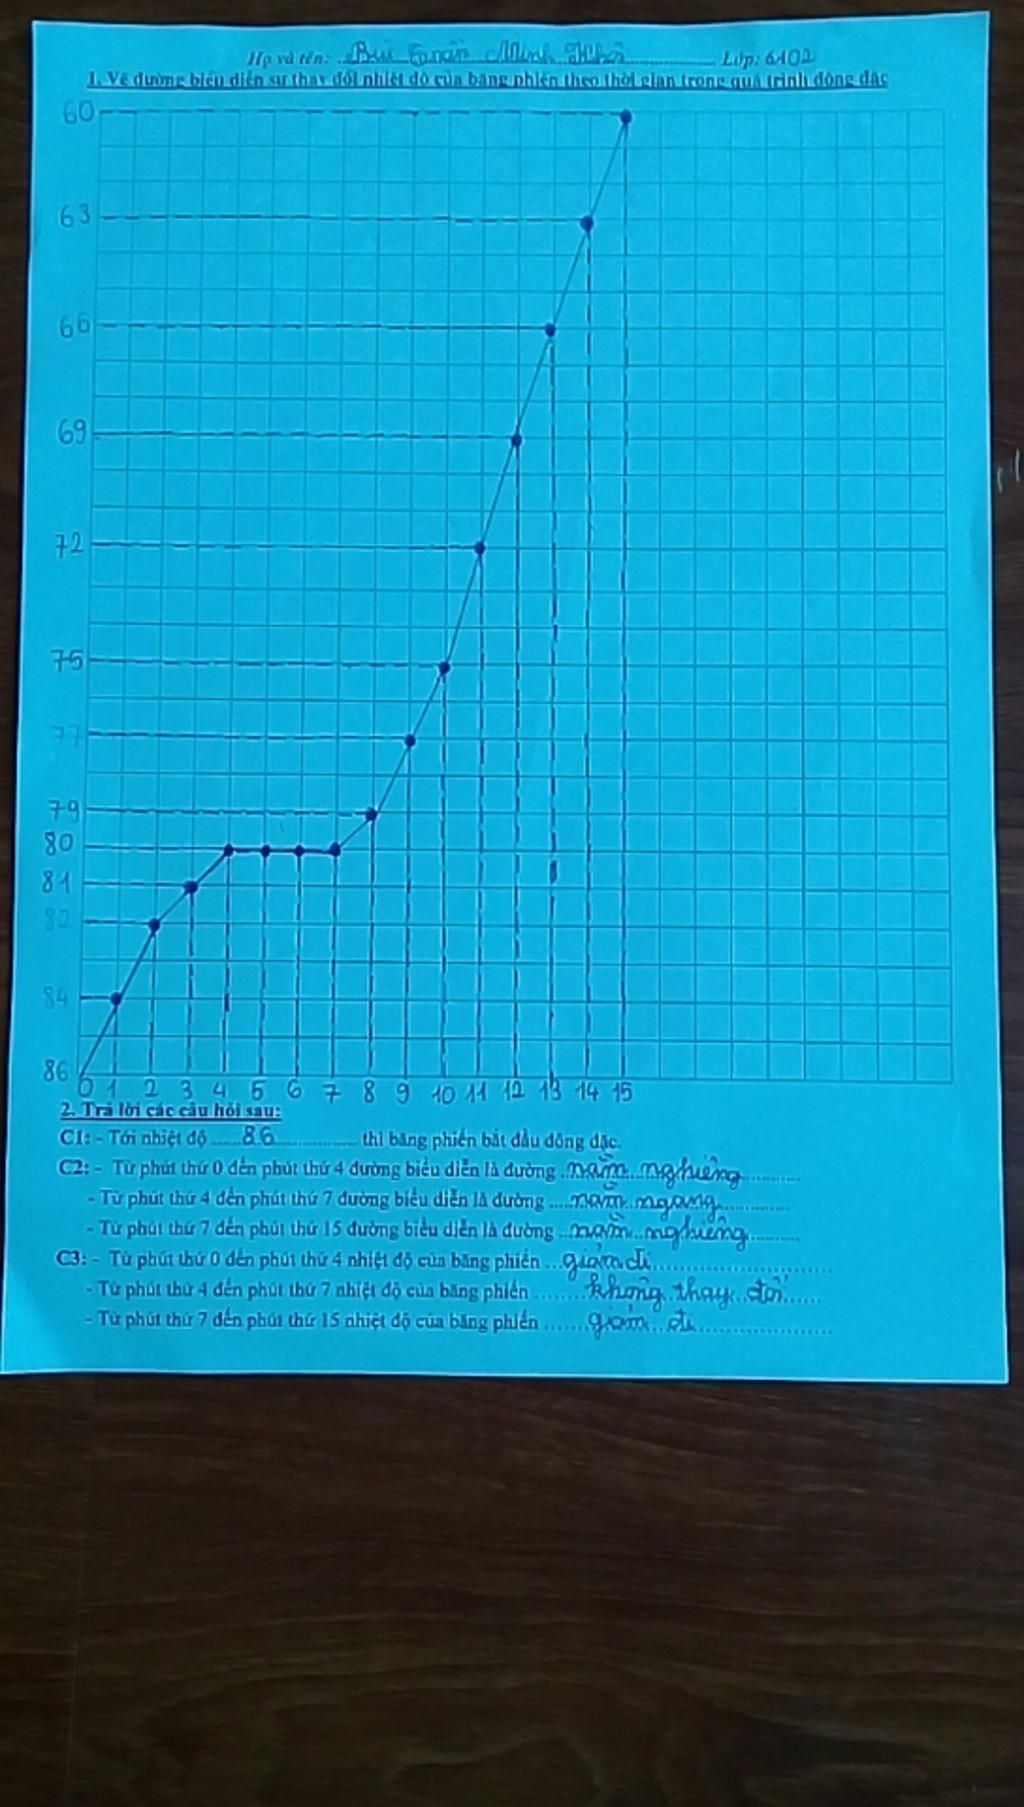 Họ và tên: Bùi Minh Lớp: 6A02
1. Vẽ đường biểu diễn sự thay đổi nhiệt độ của băng phiến theo thời gian trong quá trình đông đặc
60
63
66
69
72
75
77
79
80
81
82
84
86
0 1 2 3 4 5 6 7 8 9 10 11 12 13 14 15
2. Trả lời các câu hỏi sau:
C1: - Tới nhiệt độ ......86.................. thì băng phiến bắt đầu đông đặc.
C2: - Từ phút thứ 0 đến phút thứ 4 đường biểu diễn là đường ..nằm...nghiêng..........
- Từ phút thứ 4 đến phút thứ 7 đường biểu diễn là đường .....nằm..ngang............
- Từ phút thứ 7 đến phút thứ 15 đường biểu diễn là đường ...nằm..nghiêng..........
C3: - Từ phút thứ 0 đến phút thứ 4 nhiệt độ của băng phiến ...giảm đi.............................
- Từ phút thứ 4 đến phút thứ 7 nhiệt độ của băng phiến ........không..thay..đổi......
- Từ phút thứ 7 đến phút thứ 15 nhiệt độ của băng phiến .......giảm..đi......................